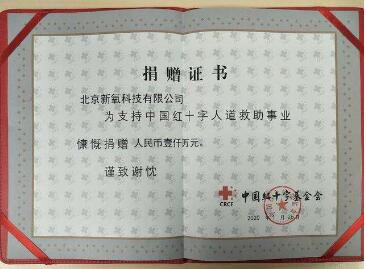 捐赠证书
北京新氧科技有限公司
为支持中国红十字人道救助事业
慷慨捐赠 人民币壹仟万元。
谨致谢忱
中国红十字基金会
CRCF
2020